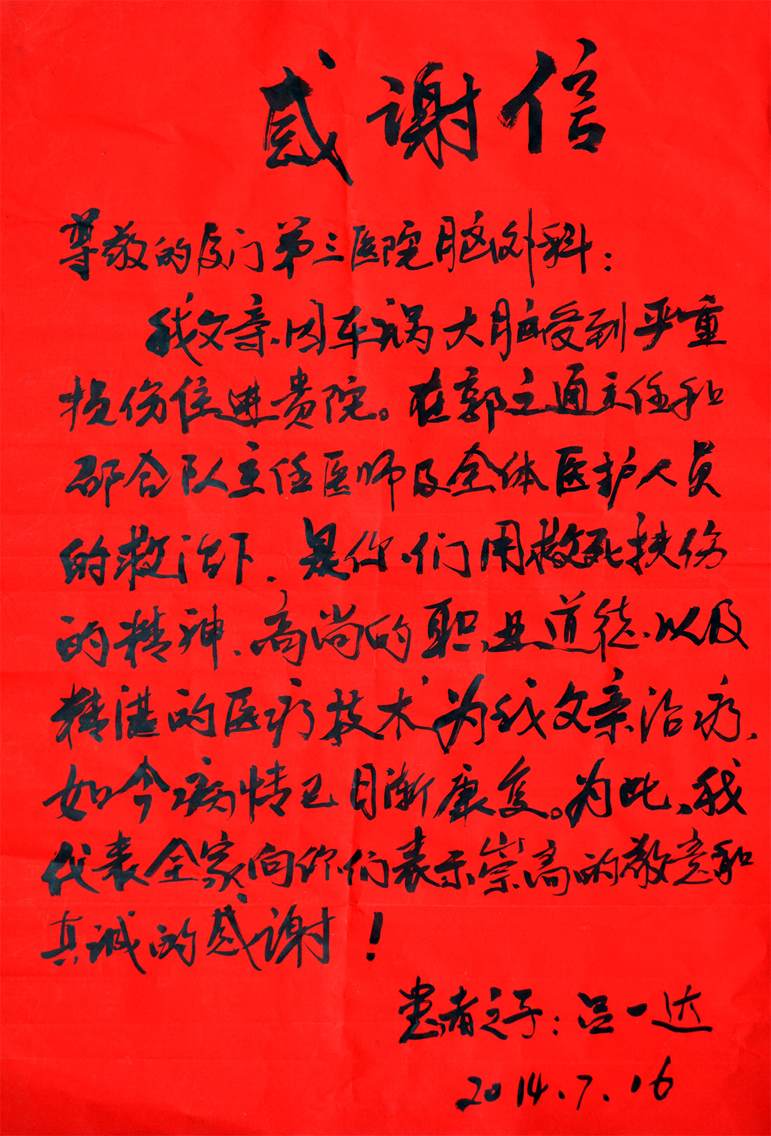 感谢信
尊敬的厦门第三医院脑外科：
我父亲因车祸大脑受到严重
损伤住进贵院。在郭之通主任和
邵合队主任医师及全体医护人员
的救治下，是你们用救死扶伤
的精神、高尚的职业道德、以及
精湛的医疗技术为我父亲治疗，
如今病情已日渐康复。为此、我
代表全家向你们表示崇高的敬意和
真诚的感谢！
患者之子：吕一达
2014.7.16